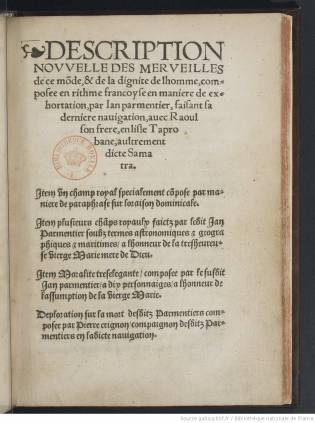 DESCRIPTION
NOVVELLE DES MERVEILLES
de ce mõde, & de la dignite de lhomme, com-
posee en rithme francoyse en maniere de ex-
hortation, par Ian parmentier, faisant sa
derniere nauigation, auec Raoul
son frere, en lisle Tapro
bane, aultrement
dicte Sama
tra.
BIBLIOTHEQUE ROYALE
Item Vn champ royal specialement cõpose par ma-
niere de paraphrase sur loraison dominicale.
Item plusieurs chãps royaulx faictz par ledit Jan
Parmentier soubz termes astronomiques & geogra
phiques & maritimes / a lhonneur de la tresheureu-
se vierge Marie mere de Dieu.
Item Moralite treselegante / composee par le susdit
Jan parmentier / a dix personnaiges / a lhonneur de
lassumption de la vierge Marie.
Deploration sur la mort desditz Parmentiers com-
posee par Pierre crignon / compaignon desditz Par-
mentiers en ladicte nauigation.
Source gallica.bnf.fr / Bibliothèque nationale de France